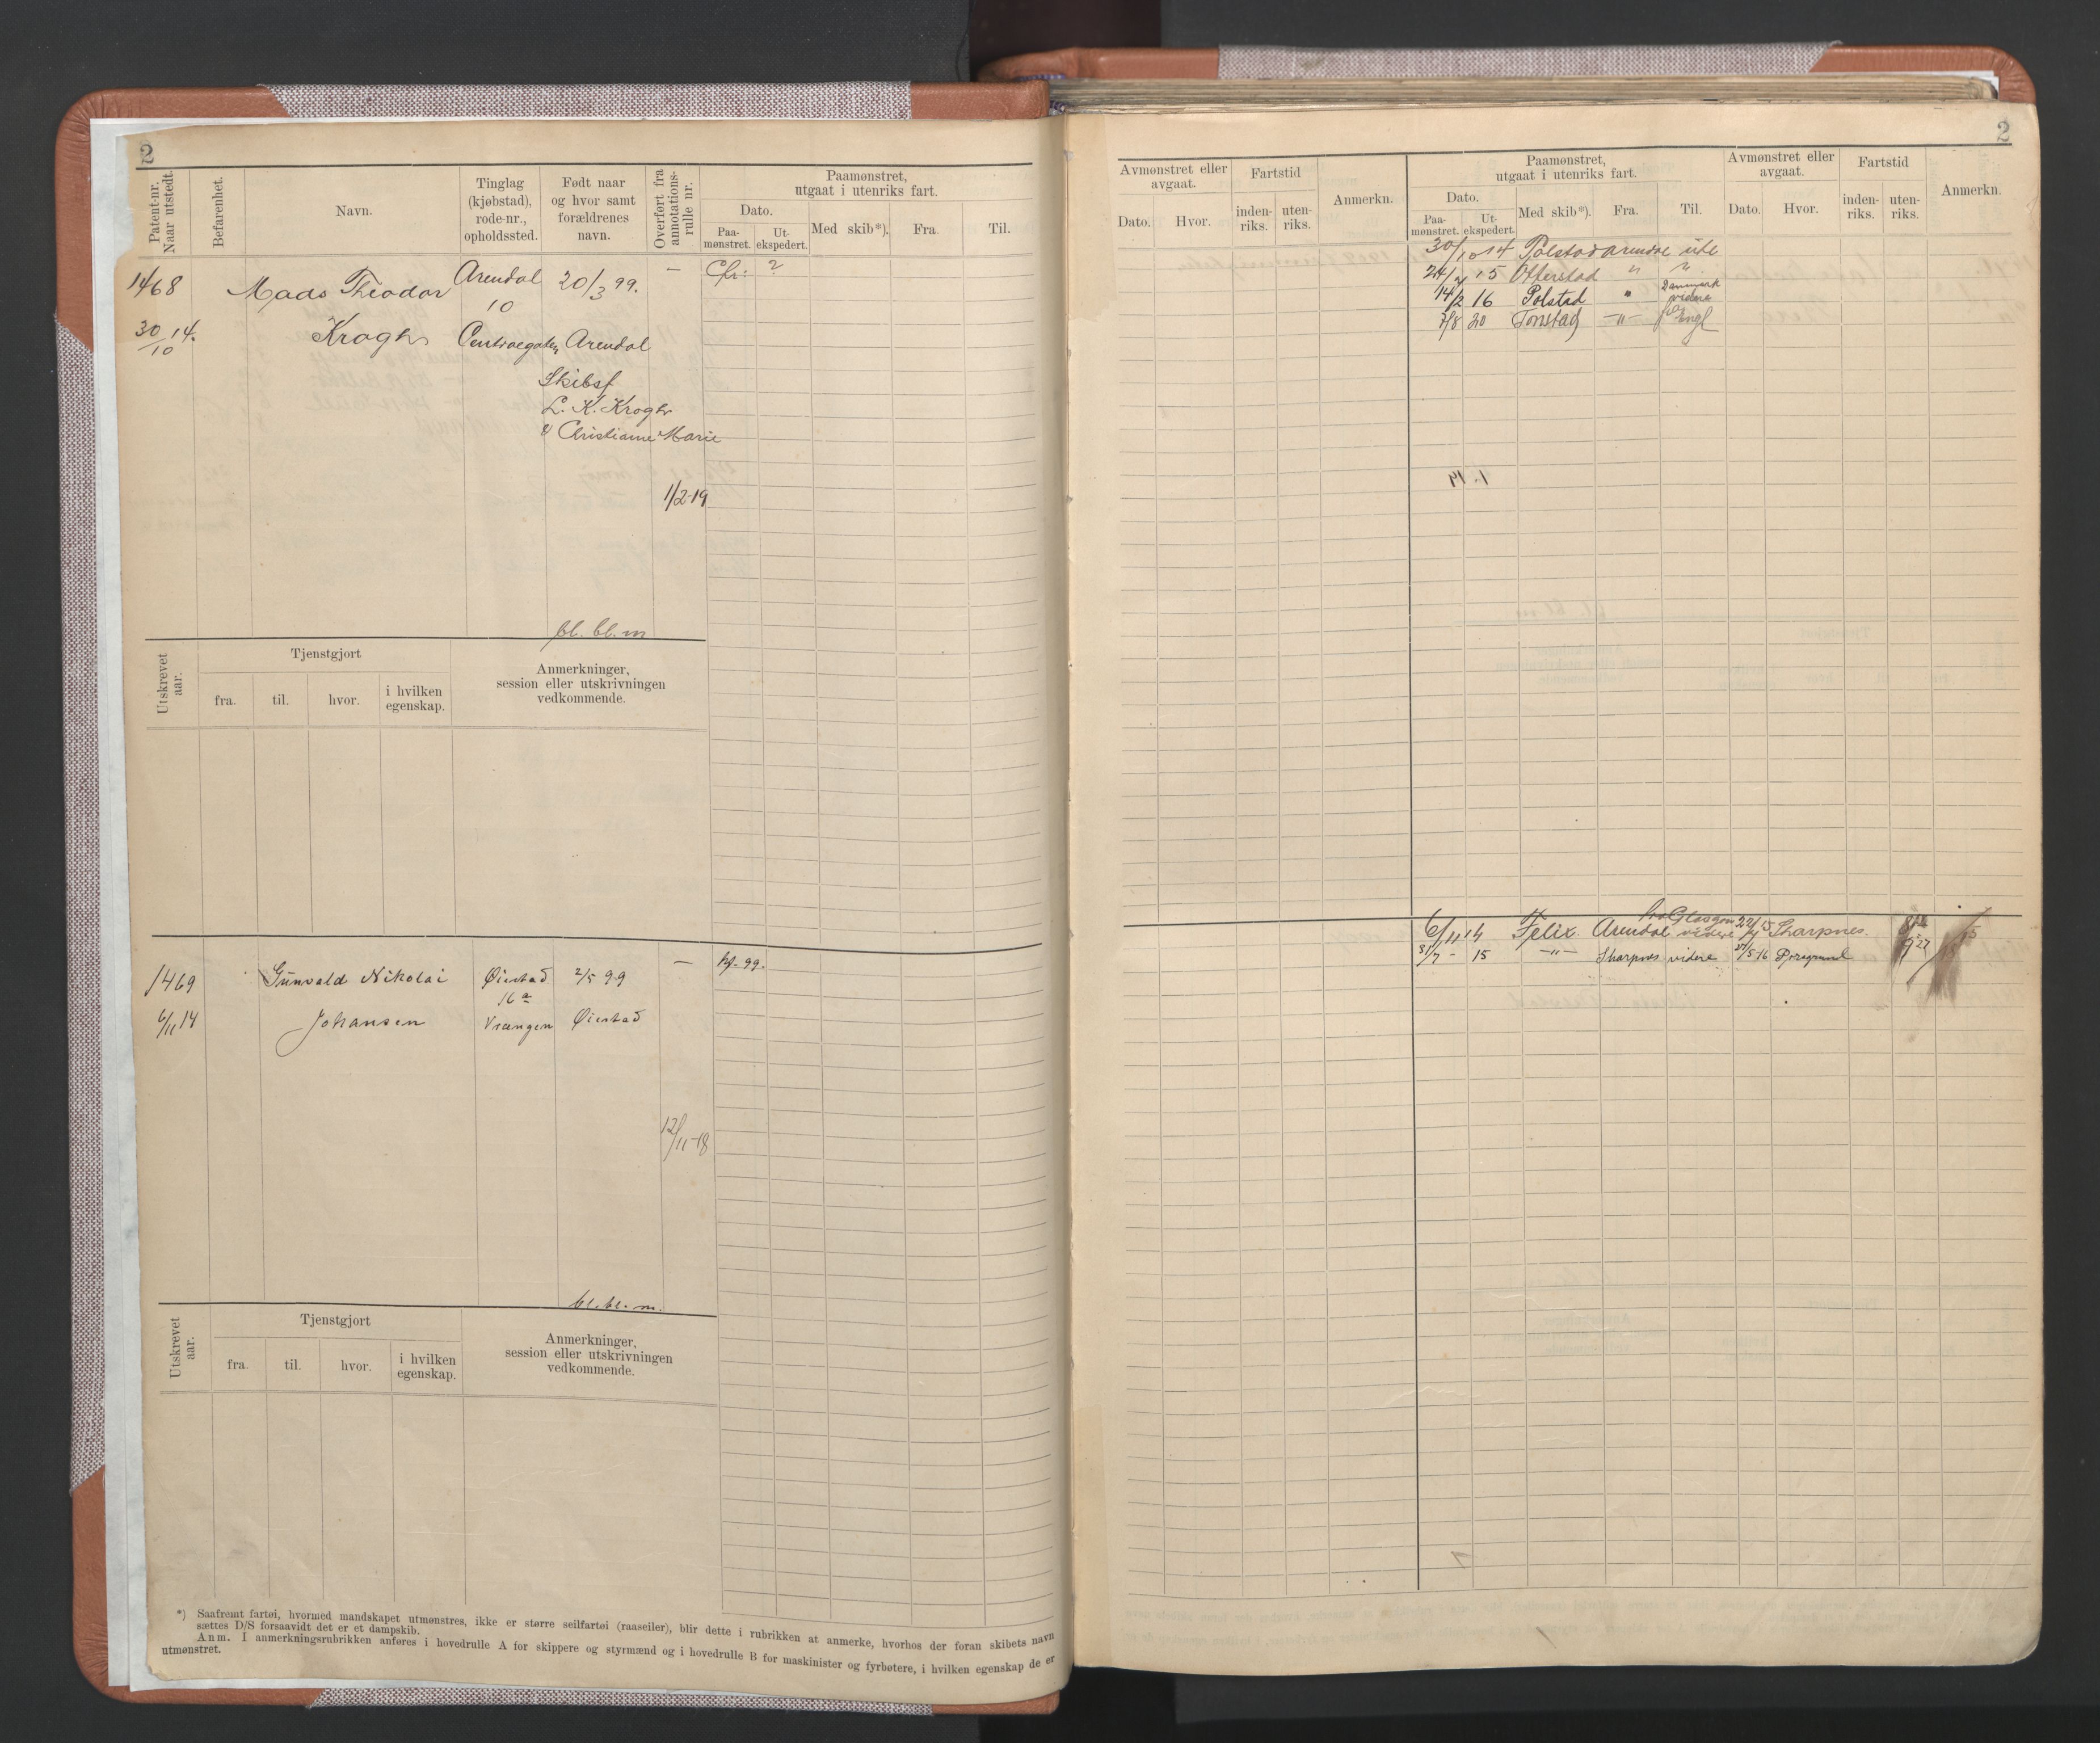 2
Patent-nr. Naar utstedt.
Befarenhet.
Navn.
Tinglag (kjøbstad), rode-nr., opholdssted.
Født naar og hvor samt forældrenes navn.
Overført fra annotations-rulle nr.
Paamønstret, utgaat i utenriks fart.
Dato.
Paa-mønstret.
Ut-ekspedert.
Med skib*).
Fra.
Til.
1468 Mads Theodor Arendal 20/3 99. — Cfr: ?
10
30/10 14. Krogh Centralgaten Arendal
Skibsf
L. K. Krogh
& Christiane Marie
1/2-19
bl. bl. m
Utskrevet aar.
Tjenstgjort
fra. til. hvor. i hvilken egenskap.
Anmerkninger, session eller utskrivningen vedkommende.
1469 Gunvald Nikolai Øiestad 2/5 99 — hf. 99.
16a
6/11 14 Johansen Vrængen Øiestad
12/11-18
bl. bl. m.
Utskrevet aar.
Tjenstgjort
fra. til. hvor. i hvilken egenskap.
Anmerkninger, session eller utskrivningen vedkommende.
*) Saafremt fartøi, hvormed mandskapet utmønstres, ikke er større seilfartøi (raaseiler), blir dette i rubrikken at anmerke, hvorhos der foran skibets navn
sættes D/S forsaavidt det er et dampskib.
Anm. I anmerkningsrubrikken anføres i hovedrulle A for skippere og styrmænd og i hovedrulle B for maskinister og fyrbøtere, i hvilken egenskap de er
utmønstret.
2
Avmønstret eller avgaat.
Dato. Hvor.
Fartstid
inden-riks. uten-riks.
Anmerkn.
Paamønstret, utgaat i utenriks fart.
Dato.
Paa-mønstret. Ut-ekspedert.
Med skib*). Fra. Til.
Avmønstret eller avgaat.
Dato. Hvor.
Fartstid
inden-riks. uten-riks.
Anmerkn.
30/10 14 Polstad Arendal utl
24/7 15 Otterstad " "
14/2 16 Polstad " Danmark videre
7/8 20 Tonstad —"— Engl
6/11 14 Felix Arendal Glasgow videre 22/7 15 Sharpnes
31/7 - 15 —"— Sharpnes videre 5 16 Porsgrund